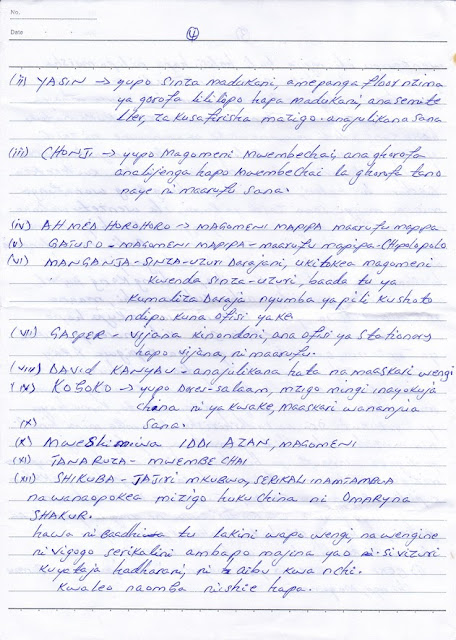 No.
Date
4
(ii) YASIN → yupo sinza madukani, amepanga floor nzima
ya gorofa lililopo hapa madukani, ana semite
ller, za kusafirisha mazigo. anajulikana sana
(iii) CHONJI → yupo Magomeni Mwembechai, ana ghorofa
analijenga hapo Mwembechai la ghorofa tano
naye ni maarufu sana.
(iv) AHMED HOROHORO → MAGOMENI MAPIPA maarufu mapipa
(v) GATUSO - MAGOMENI MAPIPA - maarufu mapipa - CHIPOLOPOLO
(vi) MANGANJA - SINZA - UZURI Darajani, ukitokea magomeni
kwenda sinza - uzuri, baada tu ya
kumaliza Daraja nyumba ya pili kushoto
ndipo kuna ofisi yake
(vii) GASPER - vijana kinondoni, ana ofisi ya stationery
hapo vijana, ni maarufu.
(viii) DAVID KANYAU - anajulikana hata na maaskari wengi
(ix) KOBOKO → yupo Dares-salaam, mzigo mingi inayokuja
china ni ya kwake, maaskari wanamjua
(x) sana.
(x) Mweshimiwa IDDI AZAN, MAGOMENI
(xi) TANARUZA - MWEMBE CHAI
(xii) SHIKUBA - TAJIRI MKUBWA, SERIKALI INAMTAMBUA
na wanaopokea mizigo huku CHINA ni OMARY na
SHAKUR.
hawa ni Baadhi tu lakini wapo wengi, na wengine
ni vigogo serikalini ambapo majina yao si vizuri
kuyataja hadharani, ni aibu kwa nchi.
kwa leo naomba niishie hapa.